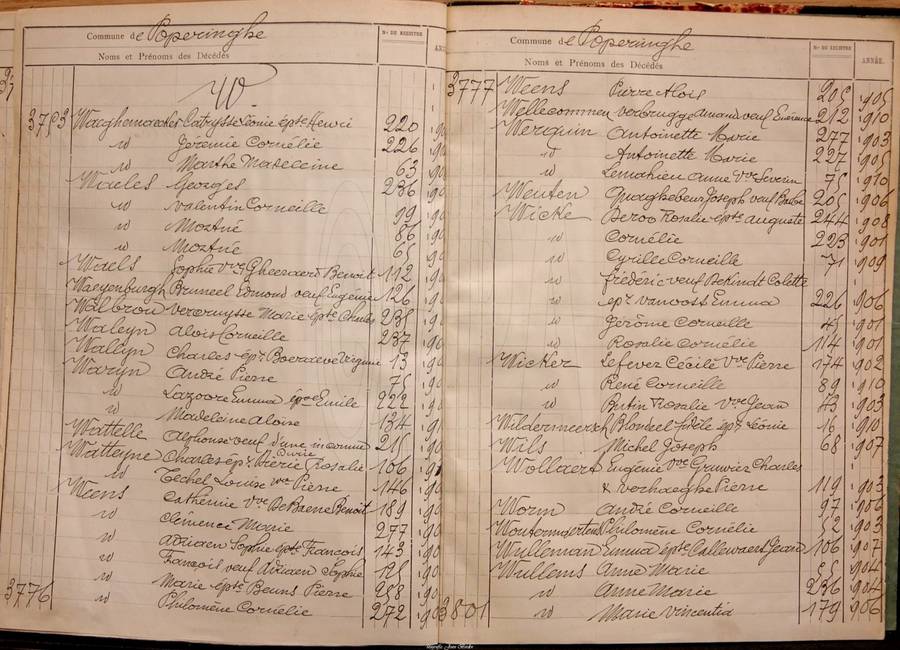 Commune de Poperinghe
Nos DU REGISTRE
Noms et Prénoms des Décédés
W
3753 Waeghemaecker Catrysse Léonie épte Henri 220 190
id Jérémie Cornélie 226 190
id Marthe Madeleine 63 190
Waeles Georges 236 190
id Valentin Corneille 99 190
id Mortné 86 190
id Mortné 65 190
Waels Sophie Vve Gheeraert Benoit 112 190
Waeyenburgh Bruneel Edmond veuf Eugénie 126 190
Walbrou Vercruysse Marie épte Charles 235 190
Waleyn Alois Corneille 237 190
Wallyn Charles épx Boeraeve Virginie 13 190
Waryn André Pierre 75 190
id Lazoore Emma épse Emile 222 190
id Madeleine Aloise 134 190
Wattelle Alphonse veuf d'une inconnue 215 190
Watteyne Charles épx Pierie Rosalie 106 191
id Techel Louise vve Pierre 146 190
Weens Cathérine Vve De Baene Benoit 189 190
id Clémence Marie 277 190
id Adriaen Sophie épte François 143 190
id François veuf Adriaen Sophie 125 190
id Marie épte Beuns Pierre 258 190
3776 id Philomène Cornélie 272 190
Commune de Poperinghe
Nos DU REGISTRE
ANNÉE.
Noms et Prénoms des Décédés
3777 Weens Pierre Alois 205 1905
Wellecommen Verbrugge Amand veuf 212 1910
Werquin Antoinette Marie 277 1903
id Antoinette Marie 227 1905
id Lemahieu Anne Vve Severin 75 1910
Weuten Quaghebeur Joseph veuf 205 1906
Wicke Beroo Rosalie épte Auguste 244 1908
id Cornélie 223 1901
id Cyrille Corneille 71 1909
id Frédéric veuf DeKindt Colette
id épx Vanoost Emma 226 1906
id Jérôme Corneille 45 1901
id Rosalie Cornélie 114 1901
Wicker Lefever Cécile Vve Pierre 174 1902
id René Corneille 89 1910
id Butin Rosalie Vve Jean 43 1903
Wildermeersch Blomeel Fidèle épx Léonie 16 1910
Wils Michel Joseph 68 1907
Wollaert Eugénie Vve Gruwier Charles
& Verhaeghe Pierre 119 1903
Worm André Corneille 97 1906
Woutermaertens Philomène Cornélie 52 1903
Wulleman Emma épte Callewaert Jean 106 1907
Wullems Anne Marie 55 1904
id Anne Marie 236 1904
3801 id Marie Vincentia 179 1906